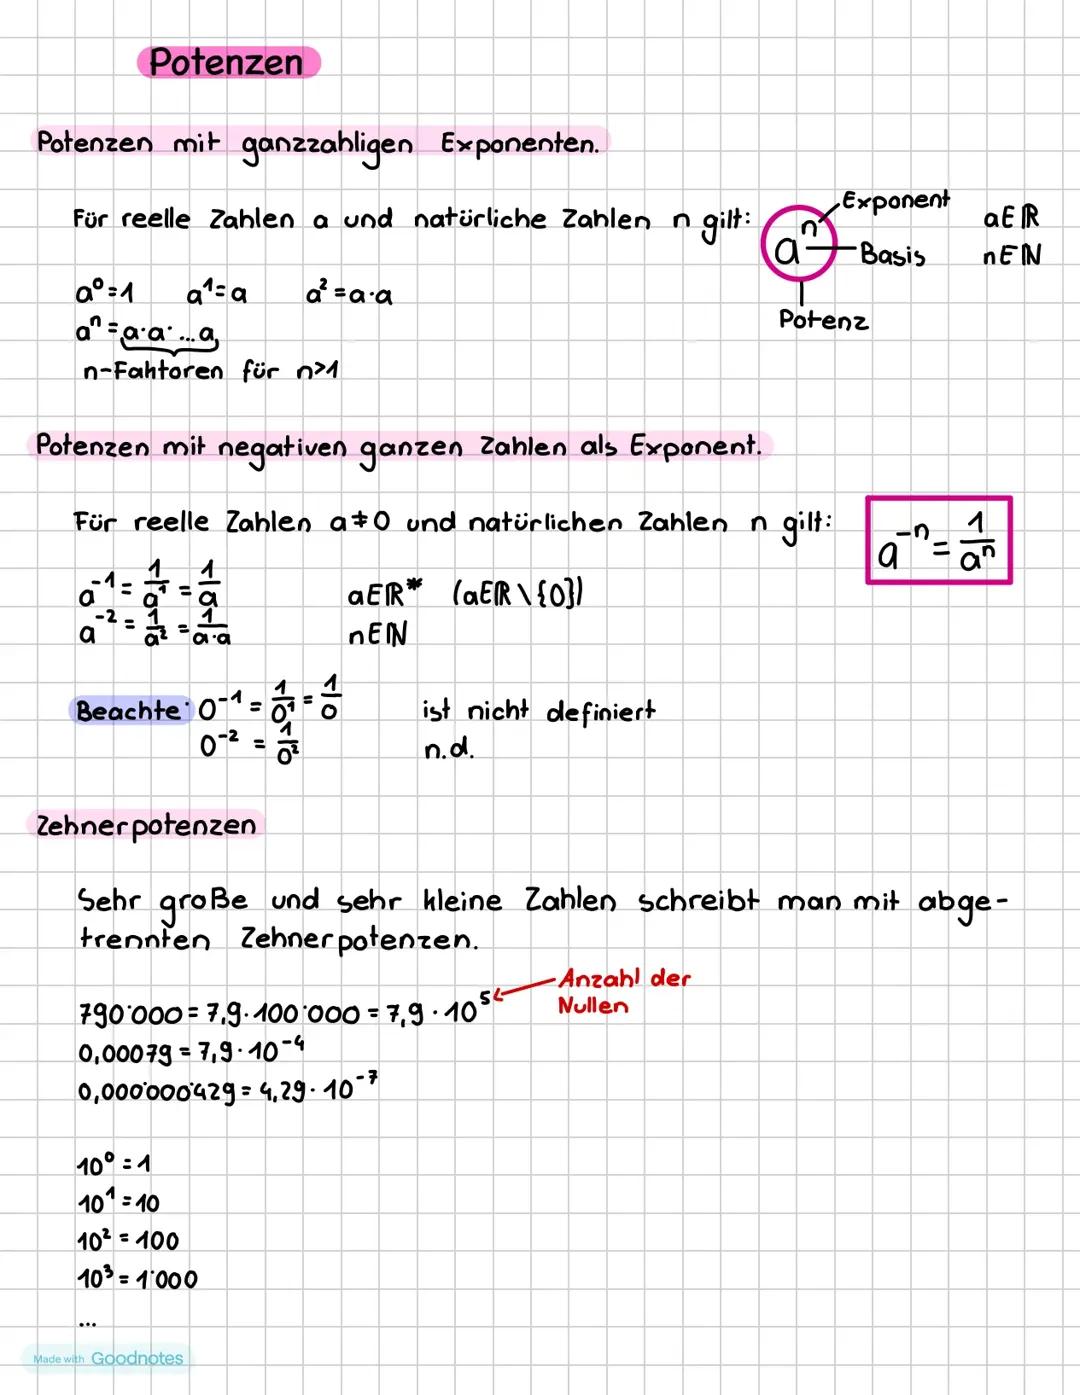 Potenzen
Potenzen mit ganzzahligen Exponenten.
Für reelle Zahlen a und natürliche Zahlen n gilt:
aⁿ
Exponent
Basis
Potenz
a∈ℝ
n∈ℕ
a⁰=1 a¹=a a²=a·a
aⁿ=a·a·...a
n-Fahtoren für n>1
Potenzen mit negativen ganzen Zahlen als Exponent.
Für reelle Zahlen a≠0 und natürlichen Zahlen n gilt:
a⁻ⁿ = 1/aⁿ
a⁻¹ = 1/a¹ = 1/a a∈ℝ* (a∈ℝ\{0})
a⁻² = 1/a² = 1/a·a n∈ℕ
Beachte: 0⁻¹ = 1/0¹ = 1/0 ist nicht definiert
0⁻² = 1/0² n.d.
Zehnerpotenzen
Sehr große und sehr kleine Zahlen schreibt man mit abge-
trennten Zehnerpotenzen.
790'000 = 7,9·100'000 = 7,9·10⁵
Anzahl der
Nullen
0,00079 = 7,9·10⁻⁴
0,000'000'429 = 4,29·10⁻⁷
10⁰ = 1
10¹ = 10
10² = 100
10³ = 1'000
...
Made with Goodnotes